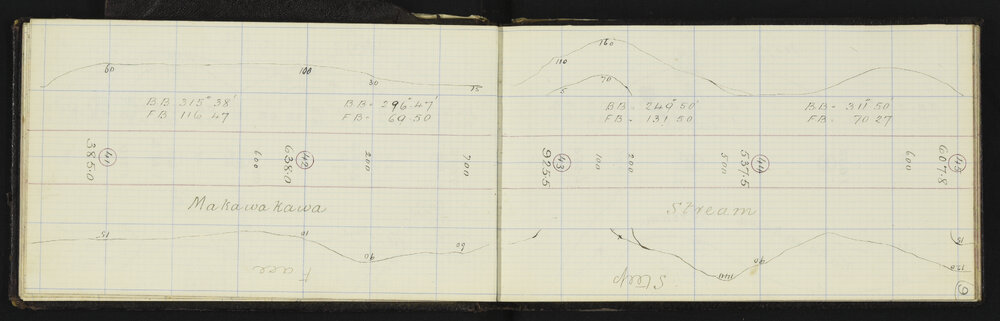 60 100 30 15 110 160 5 70
B.B. 315° 38' B.B. 296° 47' B.B. 249° 50' B.B. 311° 50'
F.B. 116 47 F.B. 69 50 F.B. 131 50 F.B. 70 27
385.0 41 600 638.0 42 200 700 925.5 43 100 200 500 537.5 44 600 607.8 45
Makawakawa Stream
15 10 90 60 x 140 90 15 120
Face Steep
9